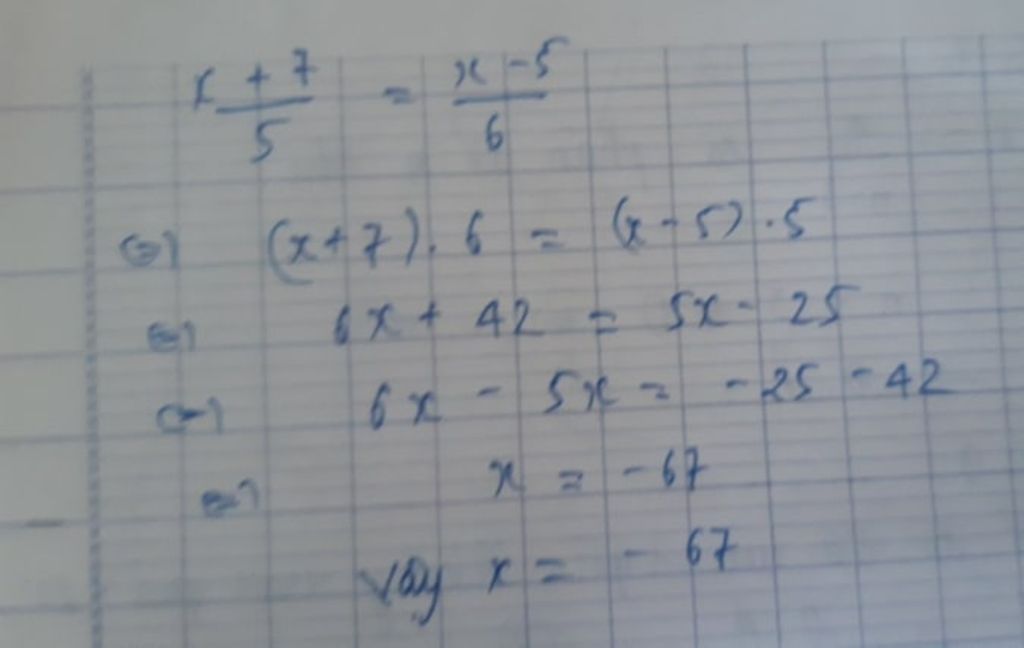 x + 7 / 5 = x - 5 / 6
(=) (x + 7) . 6 = (x - 5) . 5
(=) 6x + 42 = 5x - 25
(=) 6x - 5x = - 25 - 42
(=) x = - 67
Vậy x = - 67